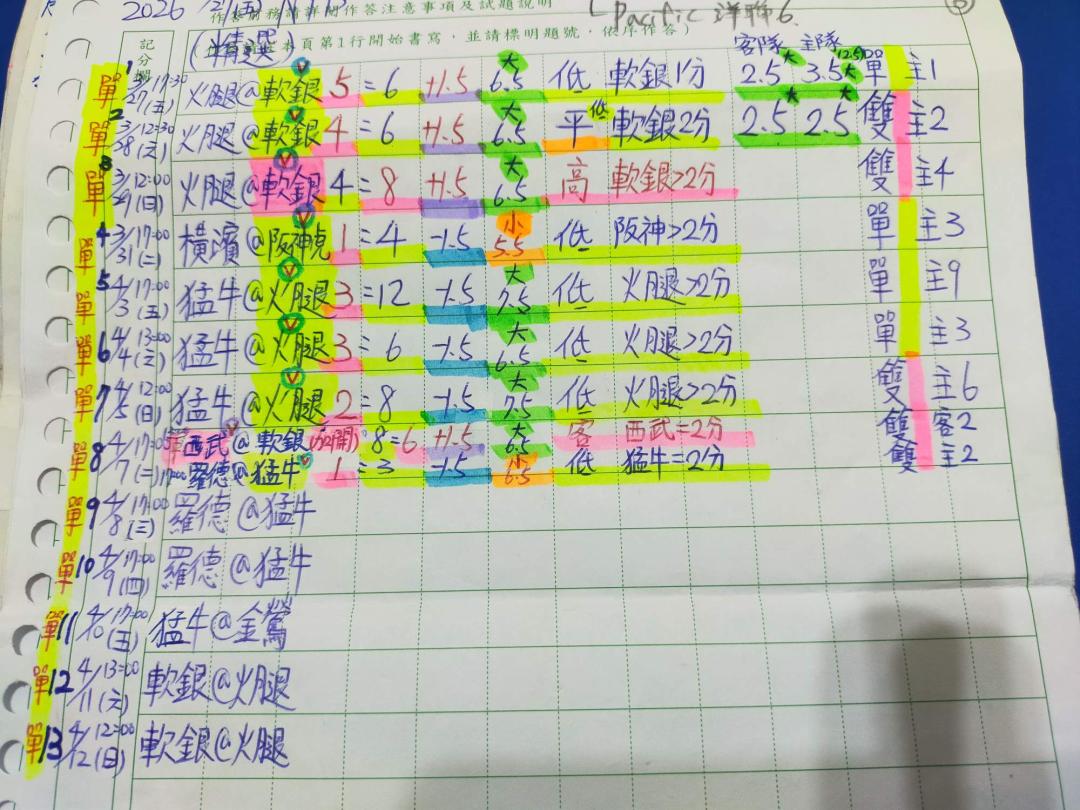 2026
作答前務請詳閱作答注意事項及試題說明
Pacific 洋聯6
記分欄
(精選)
本頁第1行開始書寫，並請標明題號，依序作答)
客隊 主隊
單 1 3/27(五) 17:30 火腿@軟銀 5=6 +1.5 大6.5 低 軟銀1分 2.5大 3.5大 (2.5) 單 主1
單 2 3/28(六) 12:30 火腿@軟銀 4=6 +1.5 大6.5 平低 軟銀2分 2.5大 2.5大 雙 主2
單 3 3/29(日) 12:00 火腿@軟銀 4=8 +1.5 大6.5 高 軟銀>2分 雙 主4
單 4 3/31(二) 17:00 橫濱@阪神虎 1=4 -1.5 小5.5 低 阪神>2分 單 主3
單 5 4/3(五) 17:00 猛牛@火腿 3=12 -1.5 大7.5 低 火腿>2分 單 主9
單 6 4/4(六) 13:00 猛牛@火腿 3=6 -1.5 大6.5 低 火腿>2分 單 主3
單 7 4/5(日) 12:00 猛牛@火腿 2=8 -1.5 大7.5 低 火腿>2分 雙 主6
單 8 4/7(二) 17:00 西武@軟銀 8=6 +1.5 大6.5 客 西武=2分 雙 客2
羅德@猛牛 1=3 -1.5 小6.5 低 猛牛=2分 雙 主2
單 9 4/8(三) 17:00 羅德@猛牛
單 10 4/9(四) 17:00 羅德@猛牛
單 11 4/10(五) 17:00 猛牛@金鶯
單 12 4/11(六) 13:00 軟銀@火腿
單 13 4/12(日) 12:00 軟銀@火腿